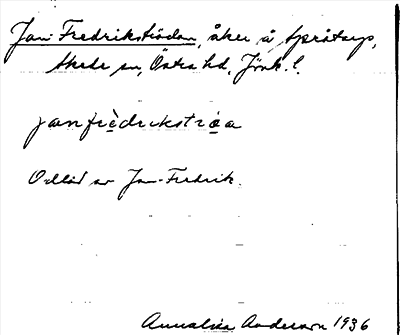 Jan-Fredrikströdan, åker å Språtorp,
Skede sn, Östra hd, Jönk. l.
janfrèdrikstróa
Odlad av Jan-Fredrik.
Annalisa Anderson 1936